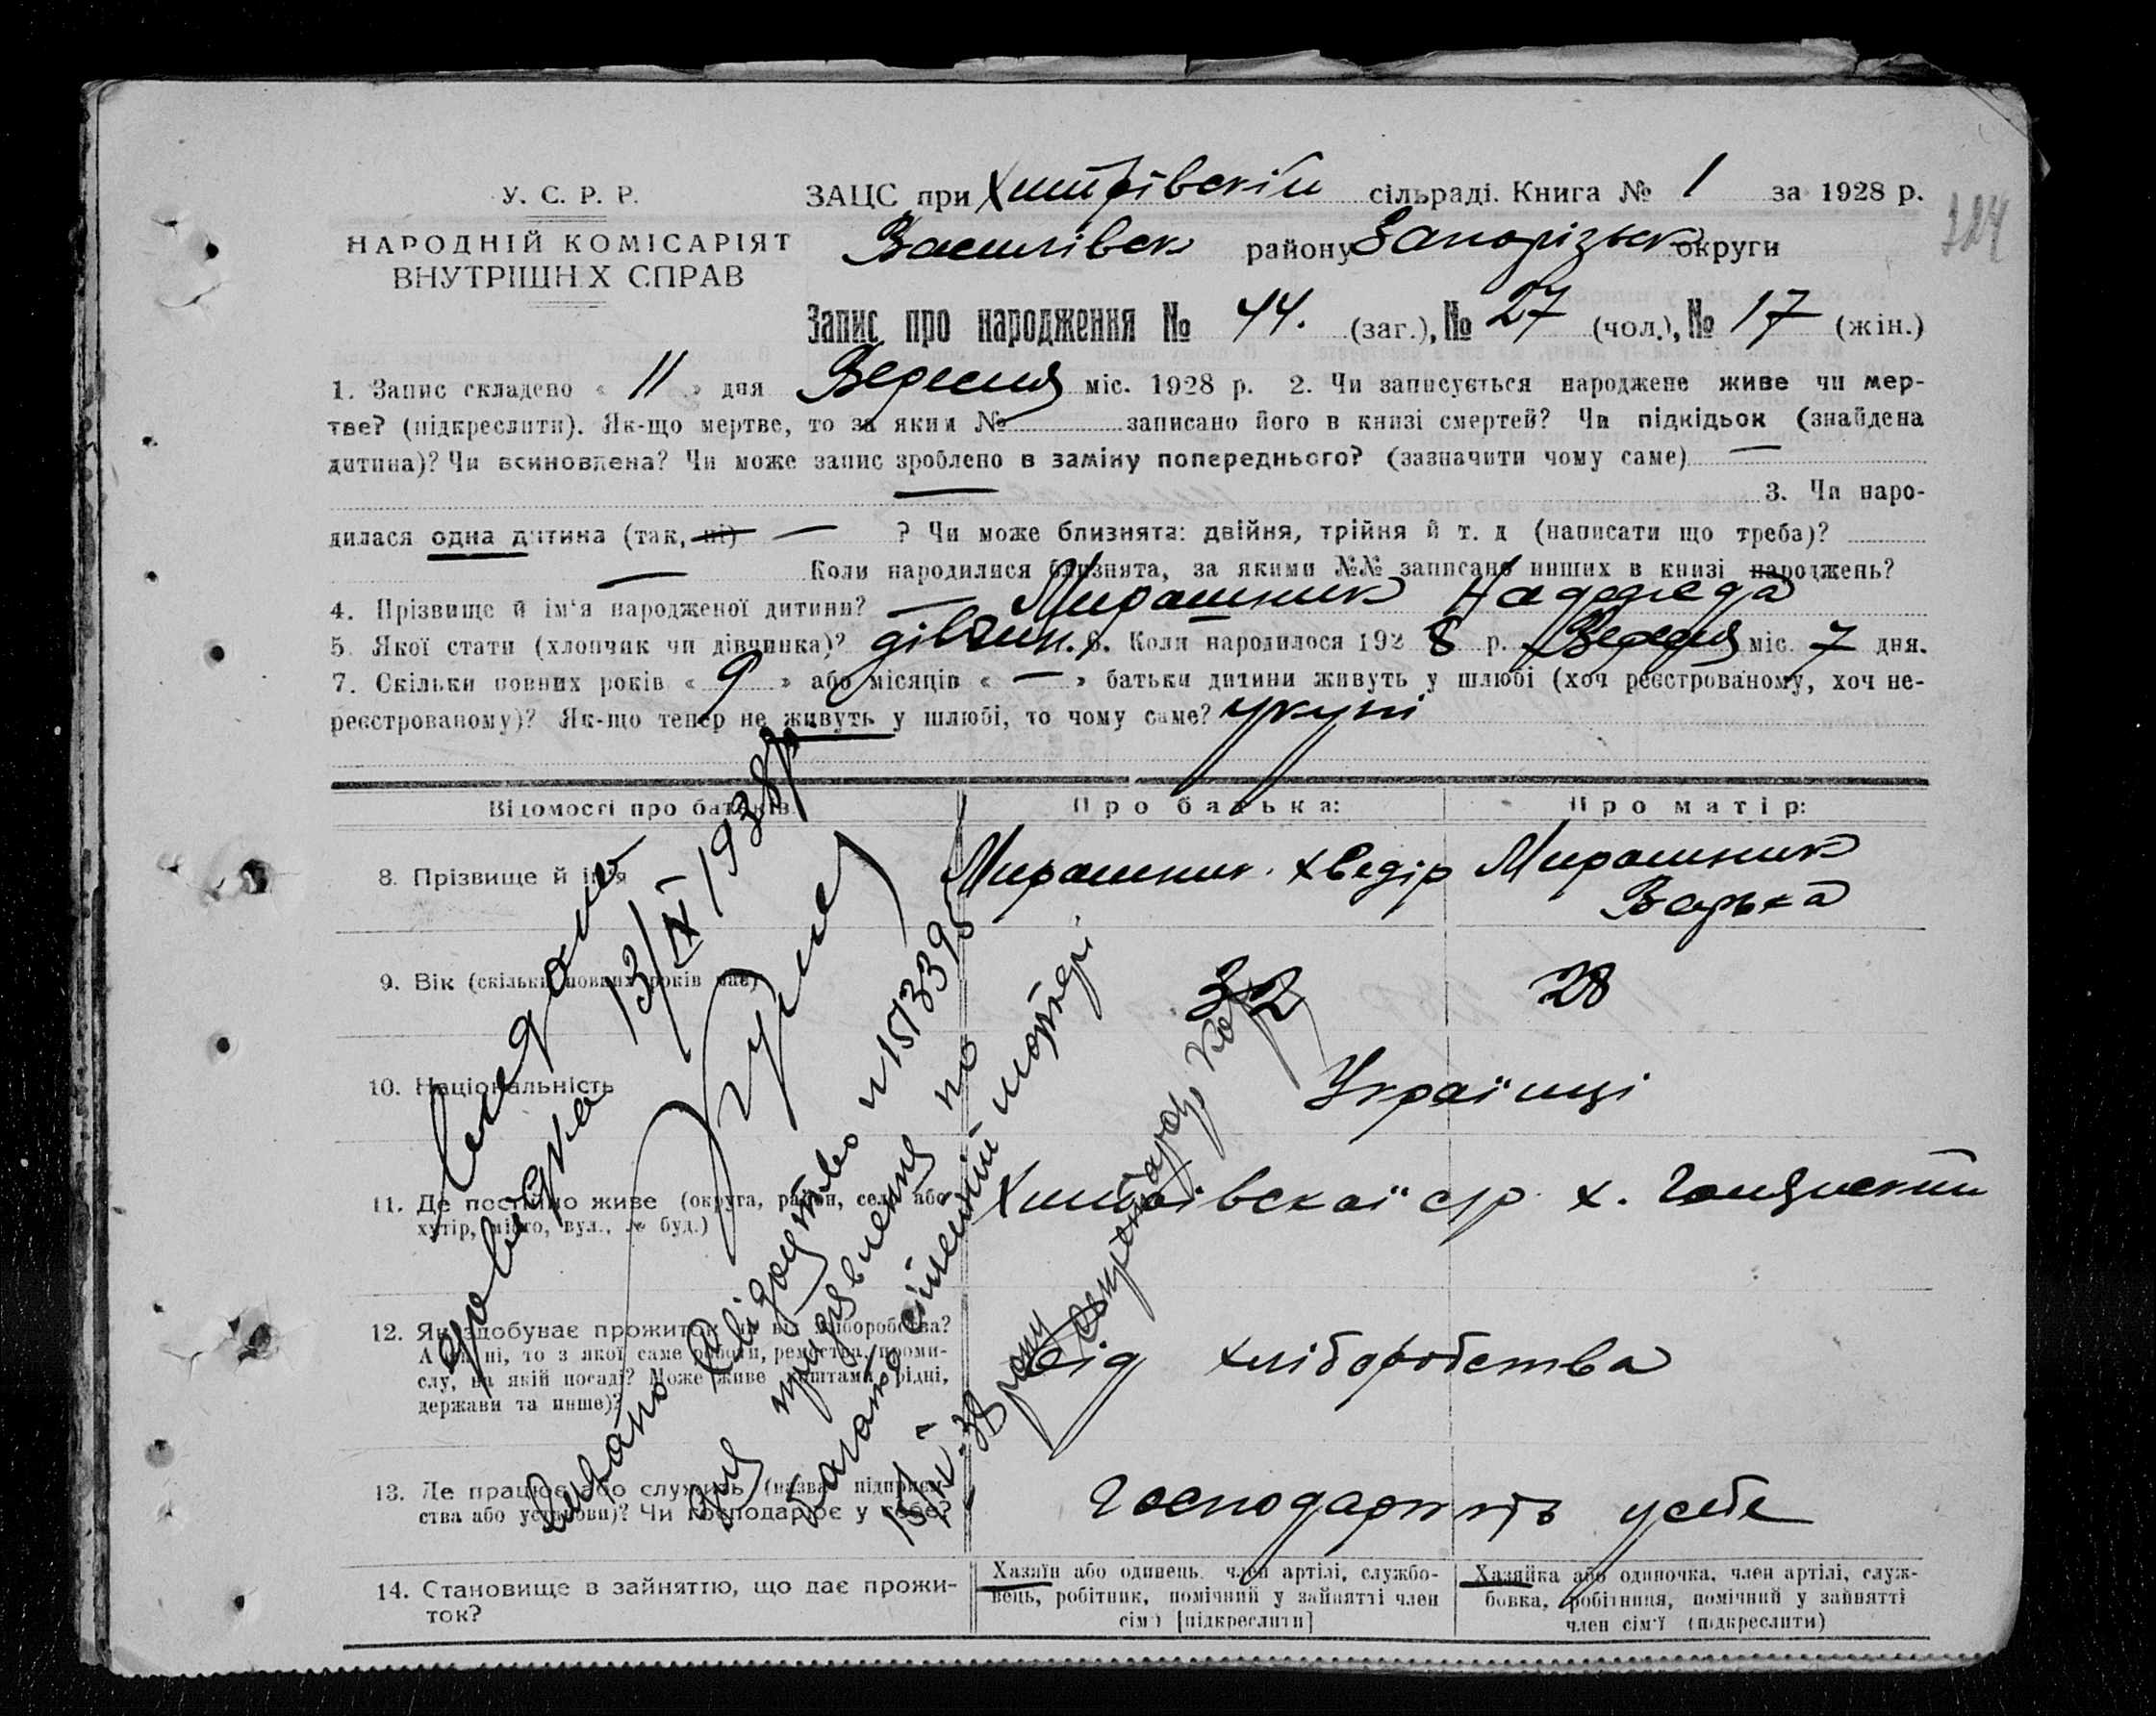 У. С. Р. Р.
НАРОДНІЙ КОМІСАРІЯТ
ВНУТРІШНІХ СПРАВ
ЗАЦС при Хитрівскій сільраді. Книга № 1 за 1928 р.
Василівск району Запорізьк округи
Запис про народження № 44. (заг.), № 27 (чол.), № 17 (жін.)
1. Запис складено « 11 » дня Вересня міс. 1928 р. 2. Чи записується народжене живе чи мер-
тве? (підкреслити). Як-що мертве, то за яким № записано його в книзі смертей? Чи підкідьок (знайдена
дитина)? Чи всиновлена? Чи може запис зроблено в заміну попереднього? (зазначити чому саме) —
— 3. Чи наро-
дилася одна дитина (так, ні) — ? Чи може близнята: двійня, трійня й т. д (написати що треба)?
— Коли народилися близнята, за якими №№ записано инших в книзі народжень?
4. Прізвище й ім'я народженої дитини? — Мирошник Надежда
5. Якої стати (хлопчик чи дівчинка)? дівчин. 6. Коли народилося 1928 р. Вересня міс. 7 дня.
7. Скільки повних років « 9 » або місяців « — » батьки дитини живуть у шлюбі (хоч реєстрованому, хоч не-
реєстрованому)? Як-що тепер не живуть у шлюбі, то чому саме? укупі
Відомості про батьків
Про батька:
Про матір:
8. Прізвище й ім'я
Мирошник Хведір
Мирошник
Варька
9. Вік (скільки повних років має)
32
28
10. Національність
Українці
11. Де постійно живе (округа, район, село або
хутір, місто, вул., № буд.)
Хитрівскої с/р. х.
12. Як здобуває прожиток: чи від хліборобства?
А як ні, то з якої саме роботи, ремества, проми-
слу, на якій посаді? Може живе коштами рідні,
держави та инше)?
Від хліборобства
13. Де працює або служить (назва підприєм-
ства або установи)? Чи господарює у себе?
Господарюють у себе
14. Становище в зайняттю, що дає прожи-
ток?
Хазяїн або одинець, член артілі, службо-
вець, робітник, помічний у зайнятті член
сім'ї [підкреслити]
Хазяйка або одиночка, член артілі, служ-
бовка, робітниця, помічний у зайнятті
член сім'ї (підкреслити)
довідка 13/IX 1938р
Видано свідоцтво
для пред'явлення по
багатосімейній матері